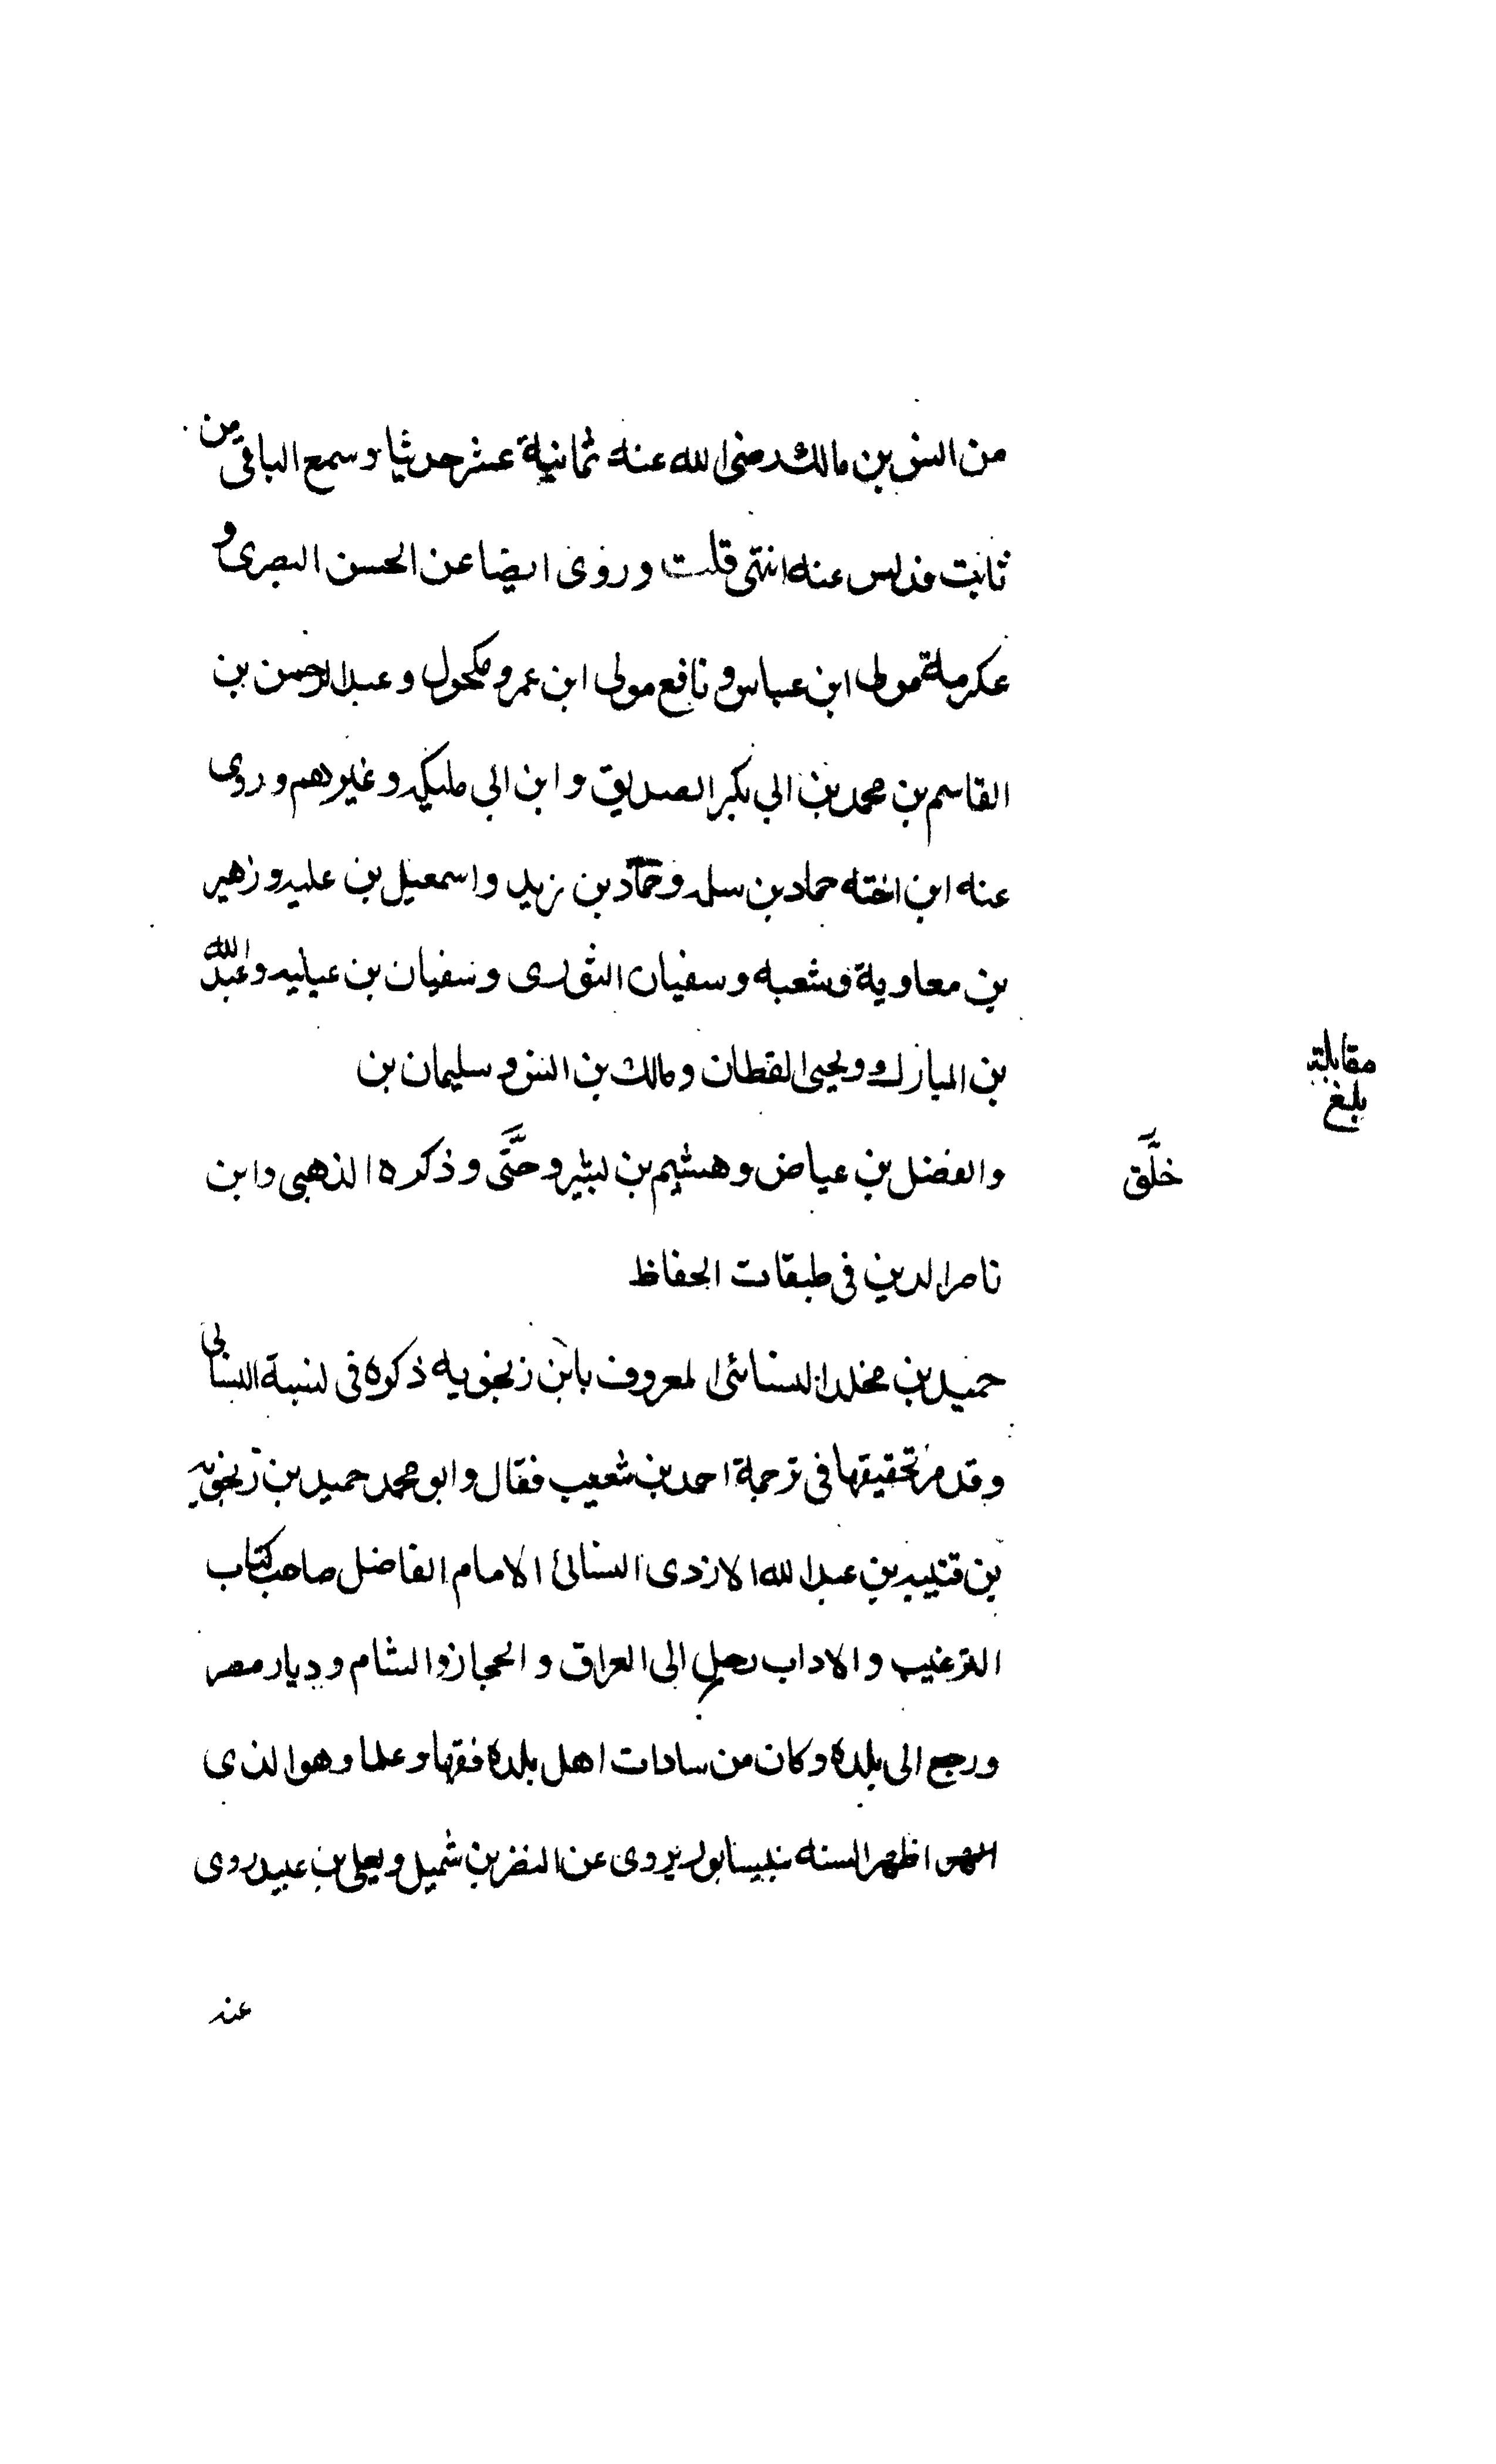 من انس بن مالك رضى الله عنه ثمانية عشر حديثا وسمع الباقى من
ثابت فدلس عنه انتهى قلت وروى ايضا عن الحسن البصرى و
عكرمة مولى ابن عباس و نافع مولى ابن عمر و مكحول و عبد الرحمن بن
القاسم بن محمد بن ابي بكر الصديق و ابن ابي مليكه وغيرهم وروى
عنه ابن اخته حماد بن سلمه وحماد بن زيد واسمعيل بن عليه وزهير
بن معاوية وشعبه وسفيان الثورى وسفيان بن عيينه وعبد الله
بن المبارك ويحيى القطان ومالك بن انس و سليمان بن
مقابلة
بلغ
والفضل بن عياض وهشيم بن بشير وحتَّى وذكره الذهبى وابن
خلَّق
ناصر الدين فى طبقات الحفاظ
حميد بن مخلد النسائى المعروف بابن زنجويه ذكره فى نسبة النسائى
وقد مر تحقيقها فى ترجمة احمد بن شعيب فقال وابو محمد حميد بن زنجويه
بن قتيبه بن عبد الله الازدى النسائى الامام الفاضل صاحب كتاب
الترغيب والاداب رحل الى العراق والحجاز والشام و ديار مصر
ورجع الى بلده وكان من سادات اهل بلده فقها وعلما وهو الذى
اظهر السنه بنيسابور يروى عن النضر بن شميل ويعلى بن عبيد روى
عنه